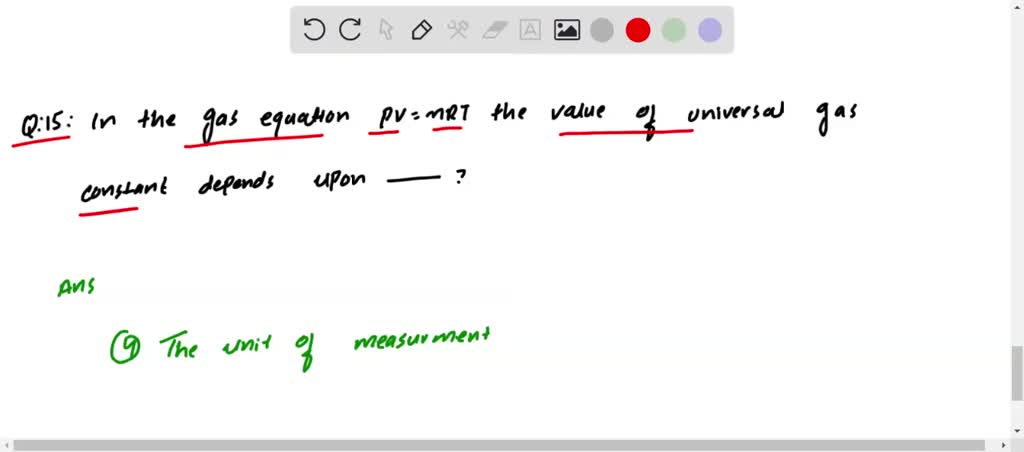 Q:15: In the gas equation PV = nRT the value of universal gas
constant depends upon — ?
Ans
(9) The unit of measurment